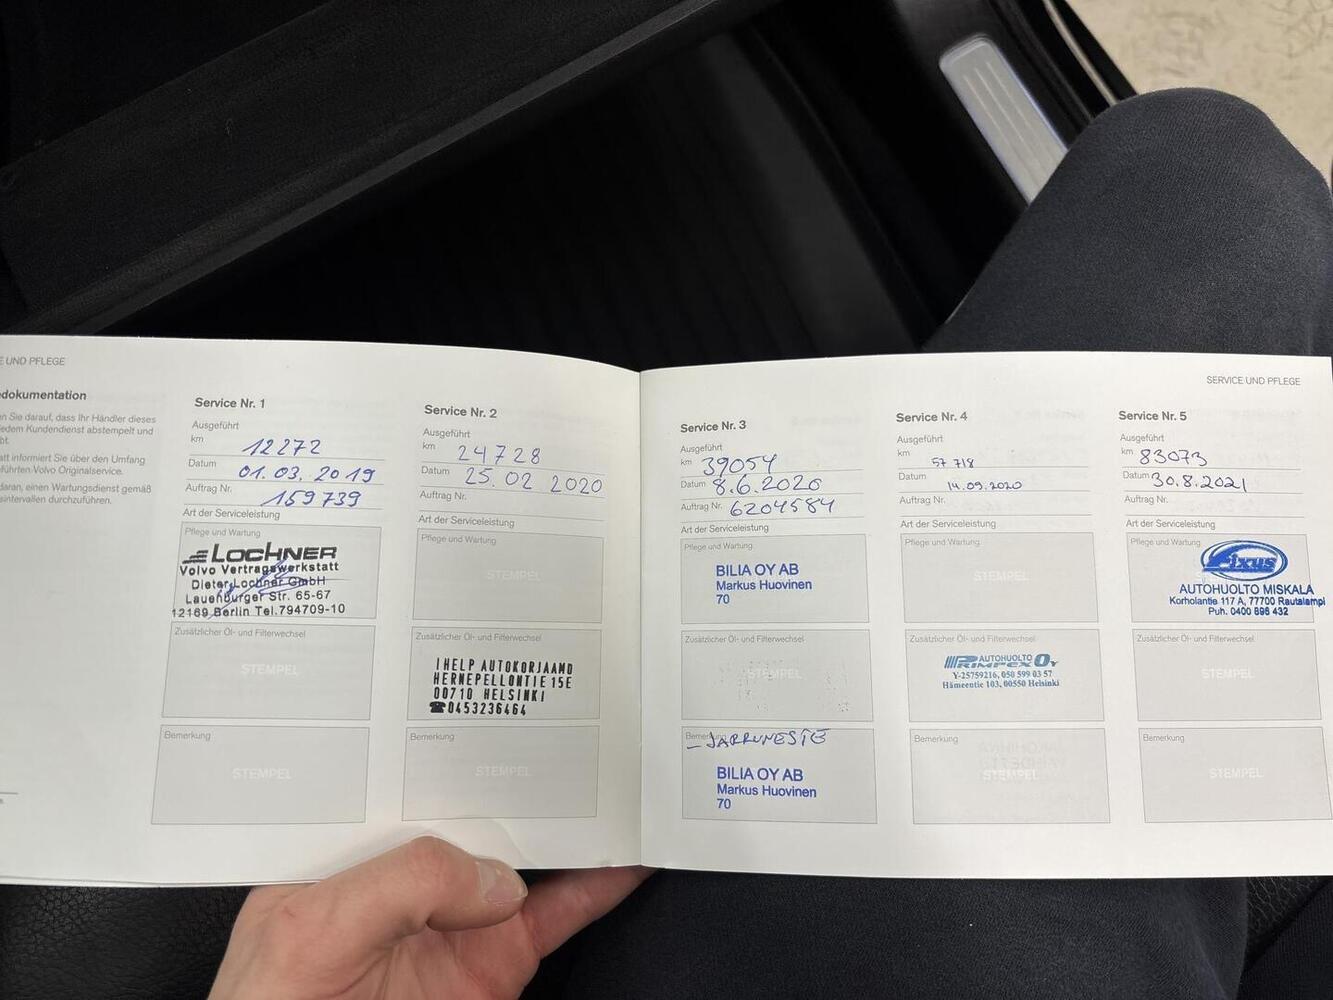 E UND PFLEGE
edokumentation
n Sie darauf, dass Ihr Händler dieses
jedem Kundendienst abstempelt und
bt.
att informiert Sie über den Umfang
führten Volvo Originalservice.
daran, einen Wartungsdienst gemäß
sintervallen durchzuführen.
Service Nr. 1
Ausgeführt
km 12272
Datum 01.03.2019
Auftrag Nr. 159739
Art der Serviceleistung
Pflege und Wartung
LOCHNER
Volvo Vertragswerkstatt
Dieter Lochner GmbH
Lauenburger Str. 65-67
12169 Berlin Tel.794709-10
Zusätzlicher Öl- und Filterwechsel
STEMPEL
Bemerkung
STEMPEL
Service Nr. 2
Ausgeführt
km 24728
Datum 25.02 2020
Auftrag Nr.
Art der Serviceleistung
Pflege und Wartung
STEMPEL
Zusätzlicher Öl- und Filterwechsel
IHELP AUTOKORJAAMO
HERNEPELLONTIE 15E
00710 HELSINKI
☎0453236464
Bemerkung
STEMPEL
SERVICE UND PFLEGE
Service Nr. 3
Ausgeführt
km 39054
Datum 8.6.2020
Auftrag Nr. 6204584
Art der Serviceleistung
Pflege und Wartung
BILIA OY AB
Markus Huovinen
70
Zusätzlicher Öl- und Filterwechsel
STEMPEL
Bemerkung
- JARRUNESTE
BILIA OY AB
Markus Huovinen
70
Service Nr. 4
Ausgeführt
km 57 718
Datum 14.09.2020
Auftrag Nr.
Art der Serviceleistung
Pflege und Wartung
STEMPEL
Zusätzlicher Öl- und Filterwechsel
AUTOHUOLTO
PRIMPEX OY
Y-25759216, 050 599 03 57
Hämeentie 103, 00550 Helsinki
Bemerkung
STEMPEL
Service Nr. 5
Ausgeführt
km 83073
Datum 30.8.2021
Auftrag Nr.
Art der Serviceleistung
Pflege und Wartung
Fixus
AUTOHUOLTO MISKALA
Korholantie 117 A, 77700 Rautalampi
Puh. 0400 896 432
Zusätzlicher Öl- und Filterwechsel
STEMPEL
Bemerkung
STEMPEL